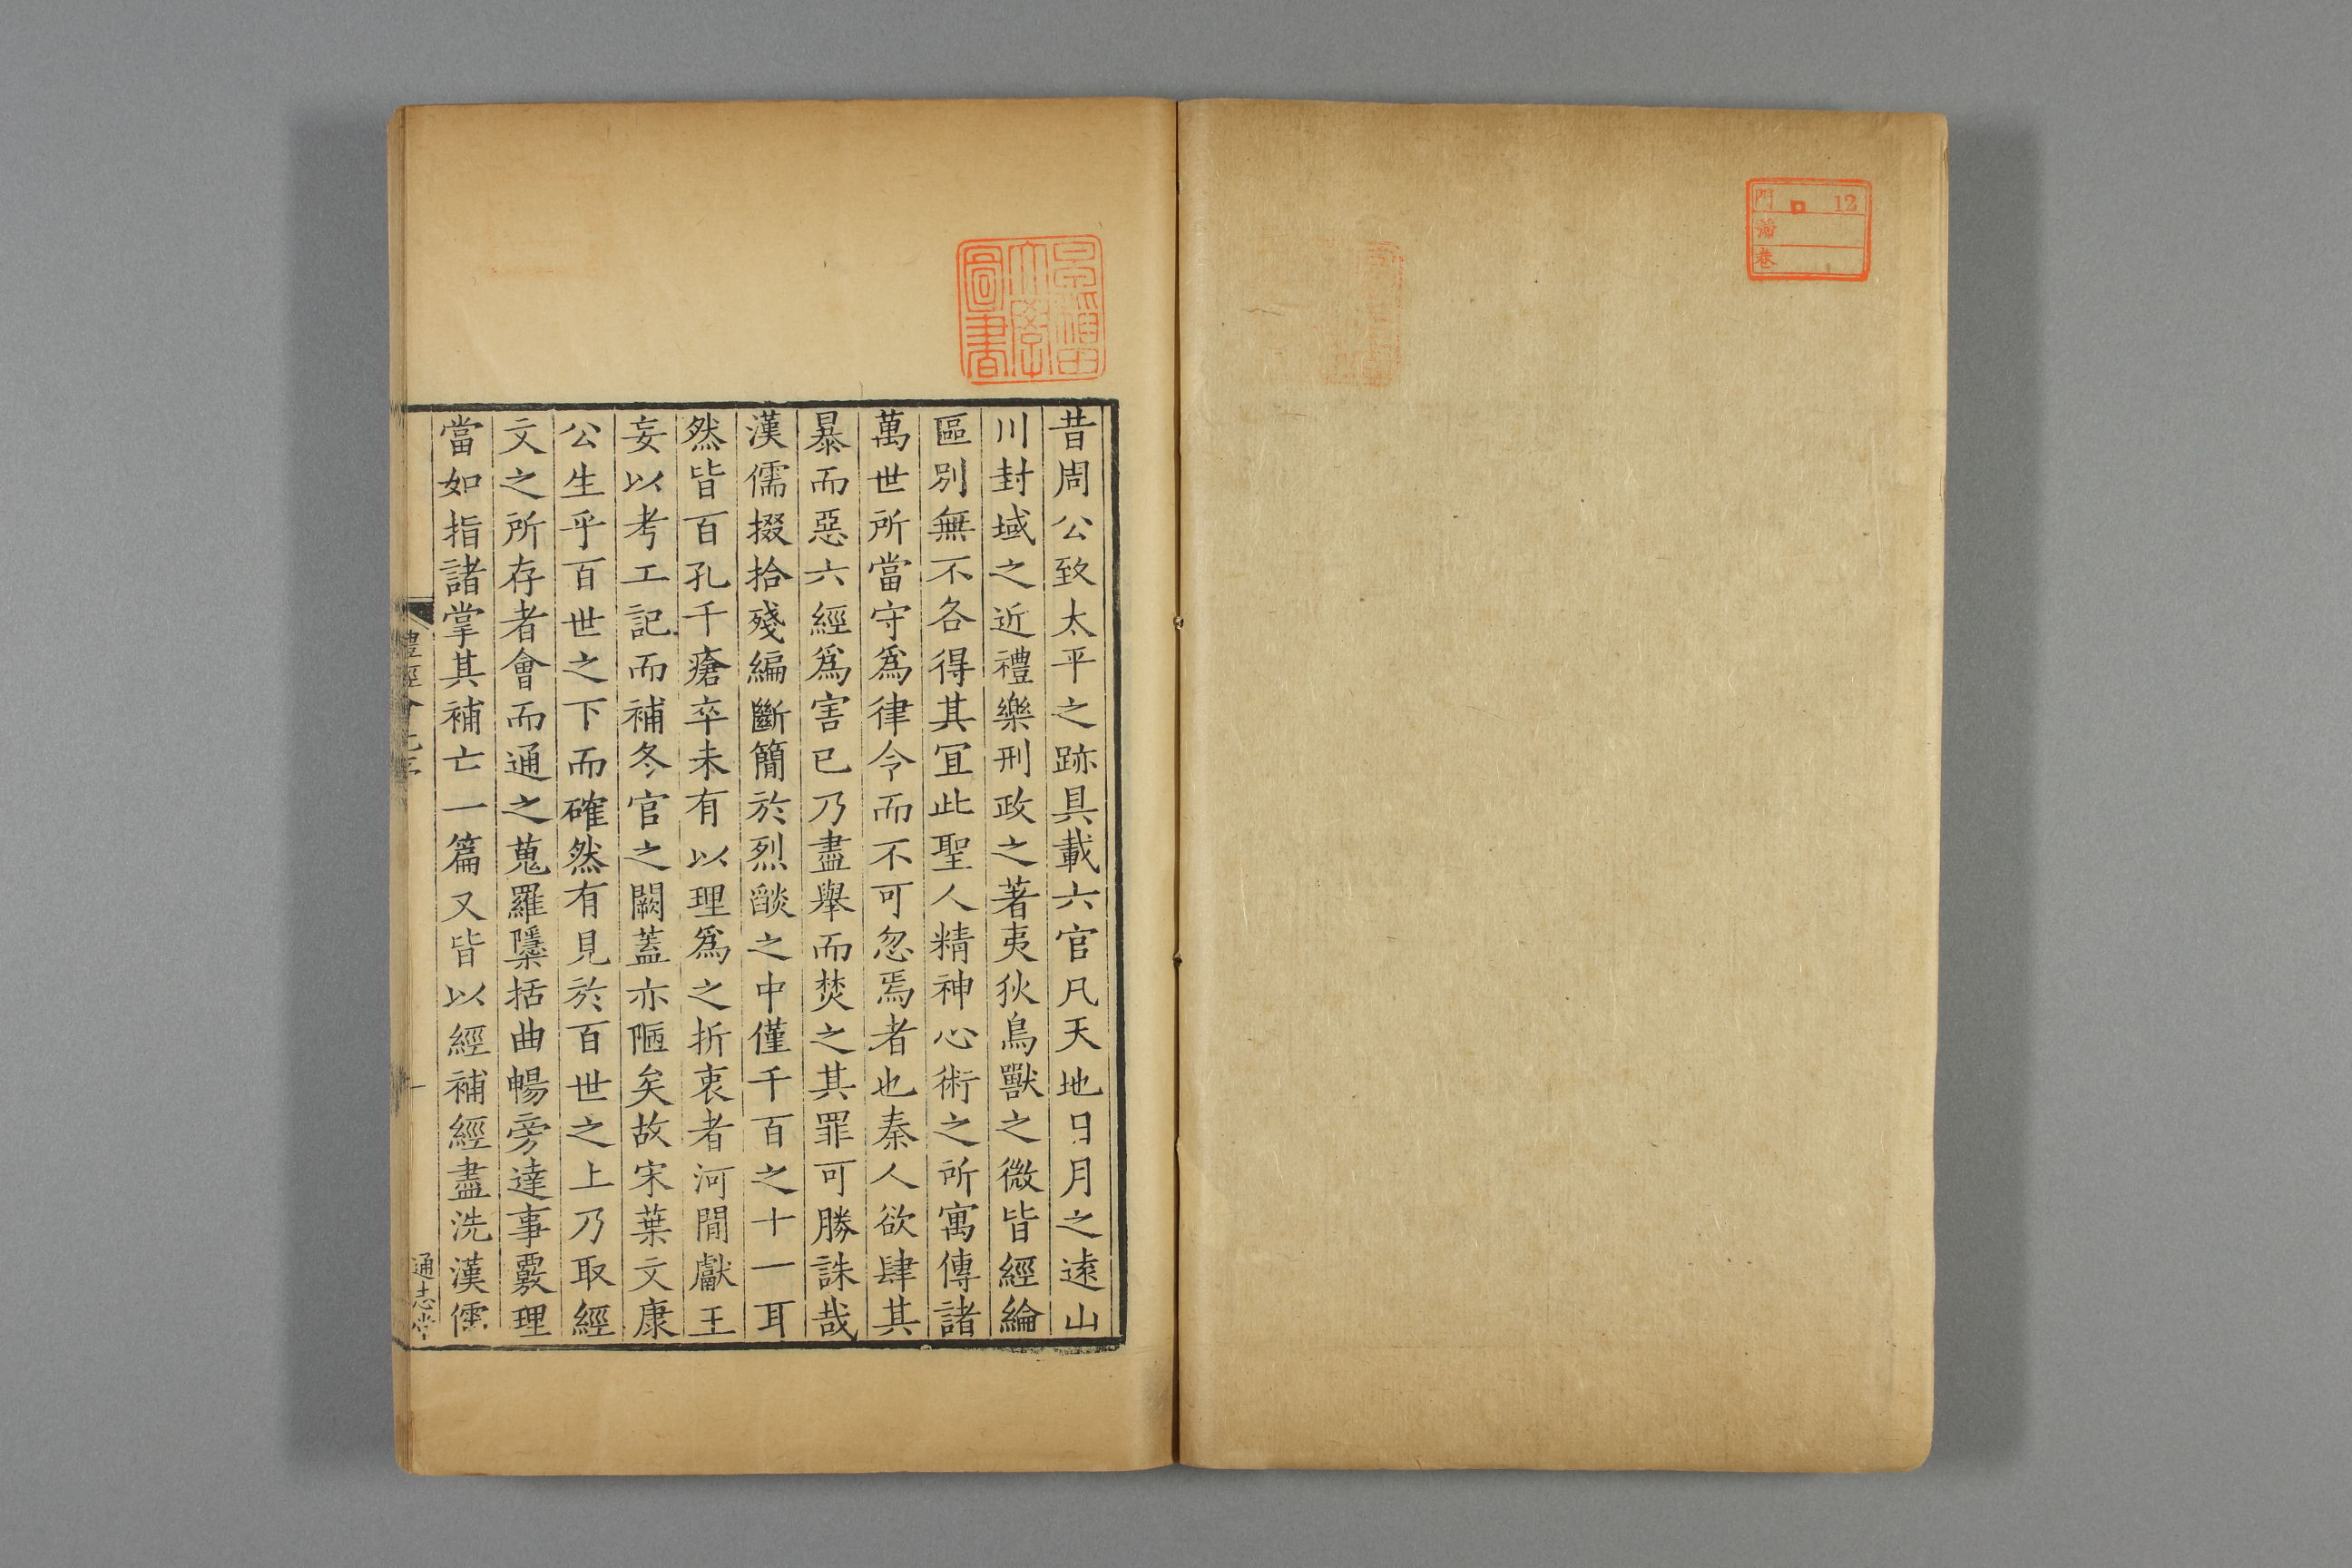 口 12
門
巻
早稲田
大學
圖書
昔周公致太平之跡具載六官凡天地日月之遠山
川封域之近禮樂刑政之著夷狄鳥獸之微皆經綸
區別無不各得其冝此聖人精神心術之所寓傳諸
萬世所當守爲律令而不可忽焉者也秦人欲肆其
暴而惡六經爲害已乃盡舉而焚之其罪可勝誅哉
漢儒掇拾殘編斷簡於烈燄之中僅千百之十一耳
然皆百孔千瘡卒未有以理爲之折衷者河閒獻王
妄以考工記而補冬官之闕蓋亦陋矣故宋葉文康
公生乎百世之下而確然有見於百世之上乃取經
文之所存者會而通之蒐羅隱括曲暢旁達事覈理
當如指諸掌其補亡一篇又皆以經補經盡洗漢儒
禮經
一
通志堂